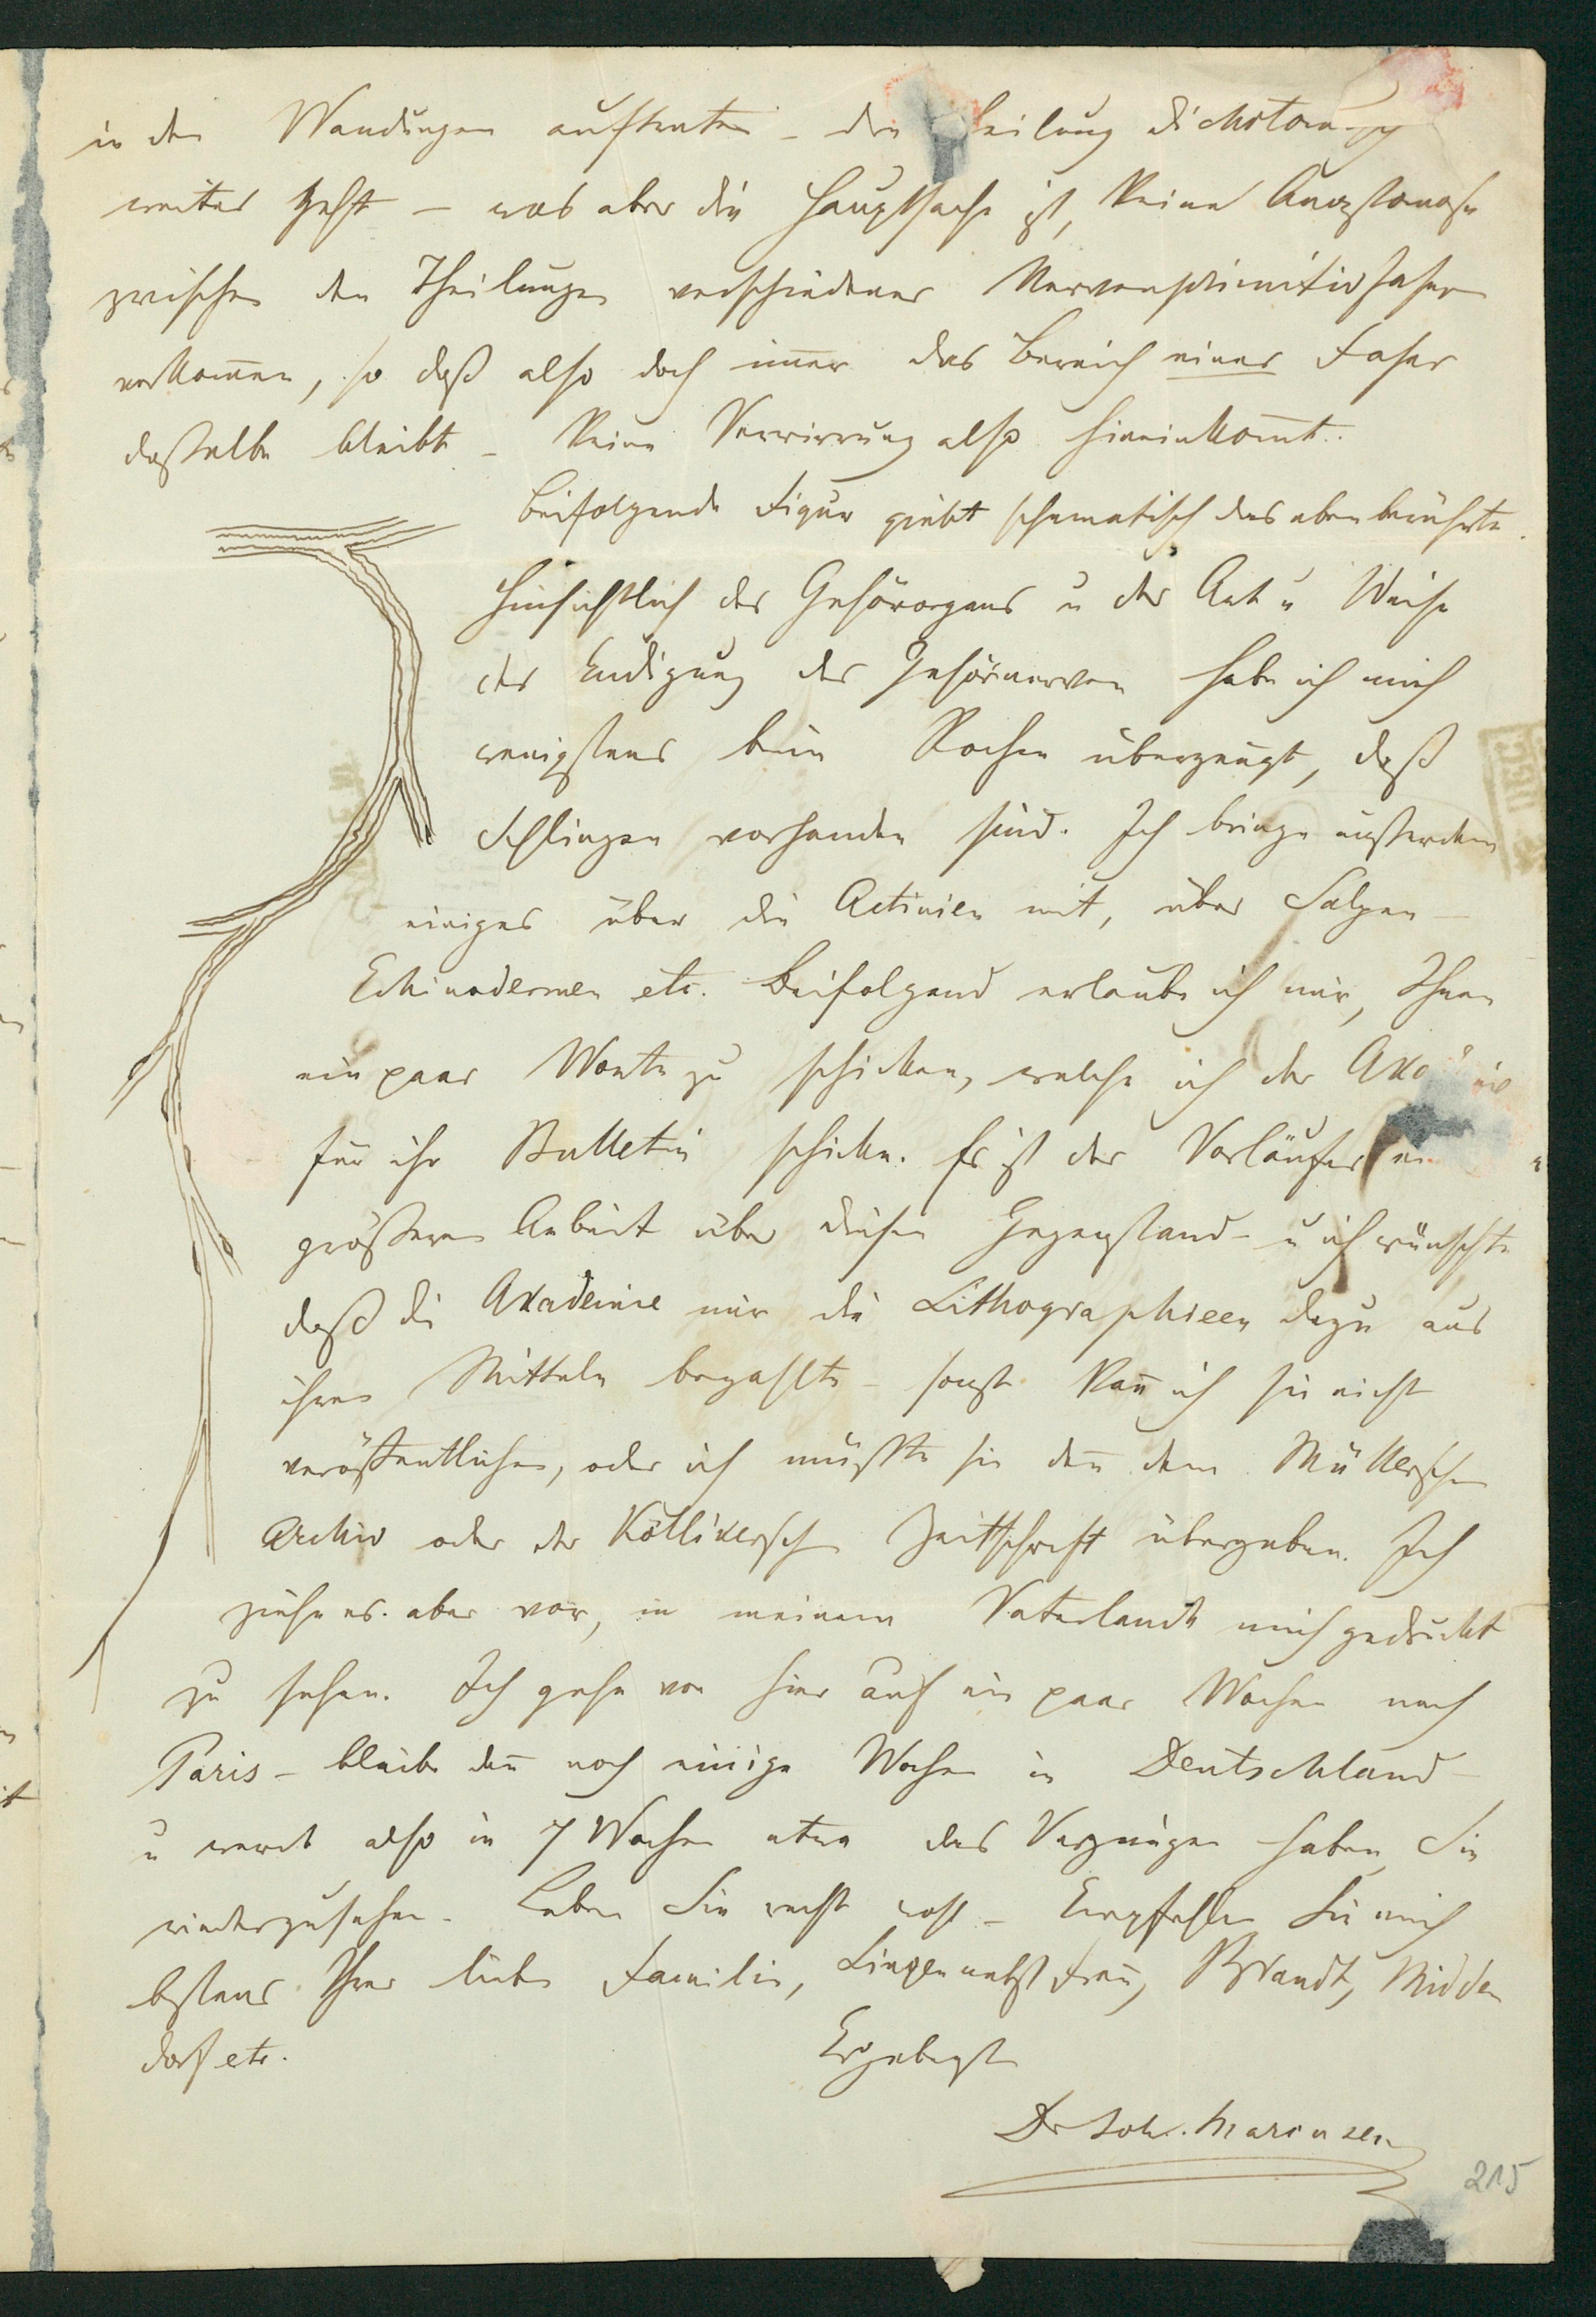 in den Wandungen auftreten – die Theilung dichotomisch
weiter geht – was aber die Hauptsache ist, keine Anastomose
zwischen den Theilungen verschiedener Nervenprimitivfasern
vorkommen, so daß also doch immer das Bereich einer Faser
dasselbe bleibt – keine Verwirrung also hineinkommt.
Beifolgende Figur giebt schematisch das eben berührte.
Hinsichtlich des Gehörorgans u der Art u Weise
der Endigung des Gehörnerven habe ich mich
wenigstens beim Rochen überzeugt, daß
Schlingen vorhanden sind. Ich bringe außerdem
einiges über die Actinien mit, über Salpen –
Echinodermen etc. Beifolgend erlaube ich mir, Ihnen
ein paar Worte zu schicken, welche ich der
für ihr Bulletin schicke. Es ist der Vorläufer
größeren Arbeit über diesen Gegenstand – u ich wünschte
daß die Akademie mir die Lithographieen dazu aus
ihren Mitteln bezahlte – sonst kann ich sie nicht
veröffentlichen, oder ich müßte sie denn dem Müllerschen
Archiv oder der Köllikerschen Zeitschrift übergeben. Ich
ziehe es aber vor, in meinem Vaterlande mich gedruckt
zu sehen. Ich gehe von hier auf ein paar Wochen nach
Paris – bleibe dann noch einige Wochen in Deutschland –
u werde also in 7 Wochen etwa das Vergnügen haben Sie
wiederzusehen. Leben Sie recht wohl – Empfehlen Sie mich
bestens Ihrer lieben Familie, Lingen nebst Frau, Brandt, Midden
dorf etc.
Ergebenst
Dr Joh. Marcusen
215